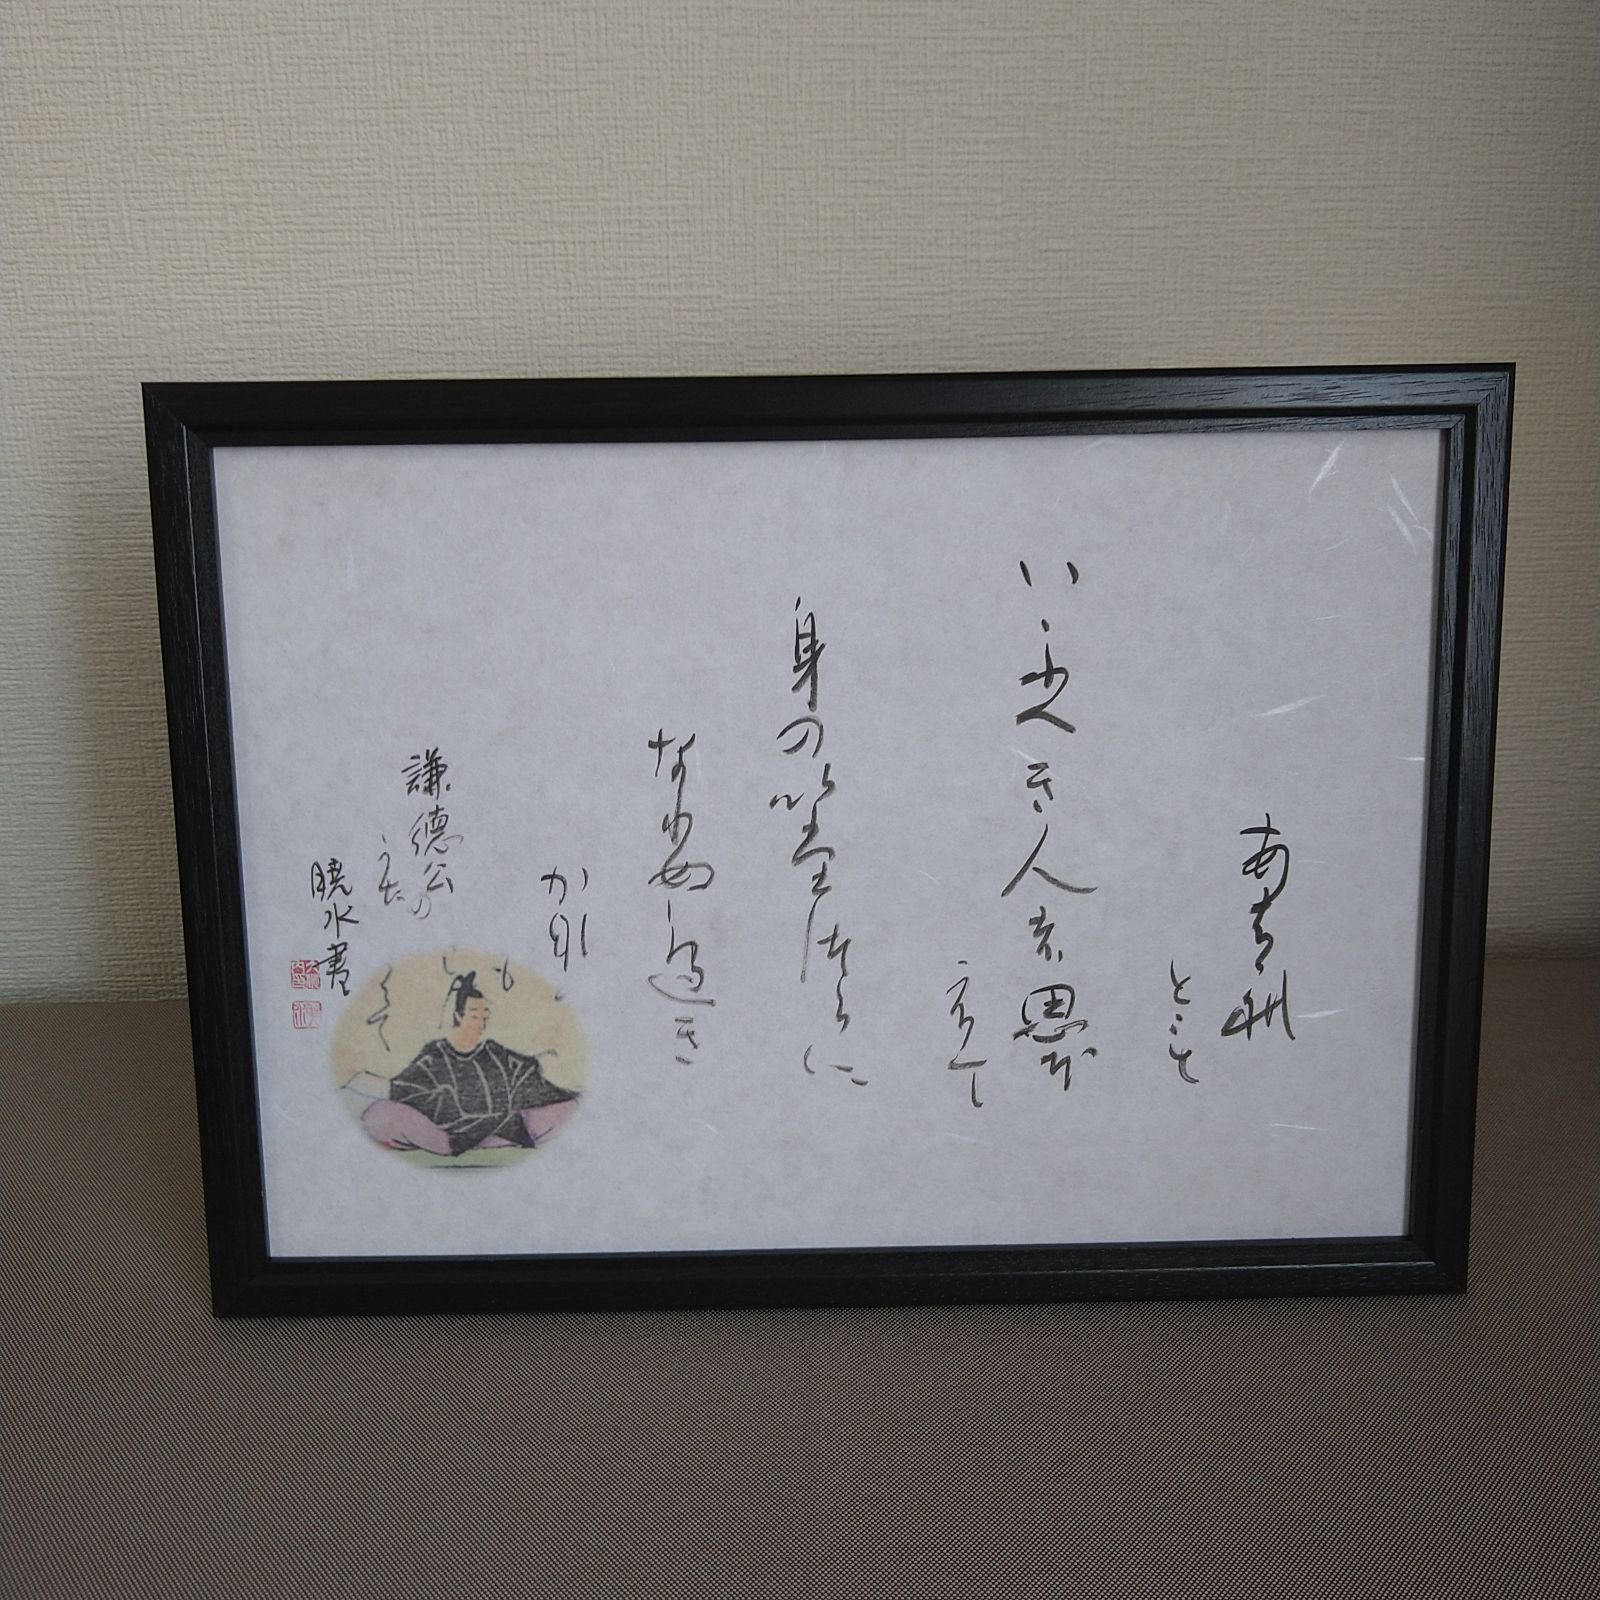 あはれ
とも
いふへき人は思ほ
えて
身のいたつらに
なりぬへき
かな
謙徳公の
うた
暁水書